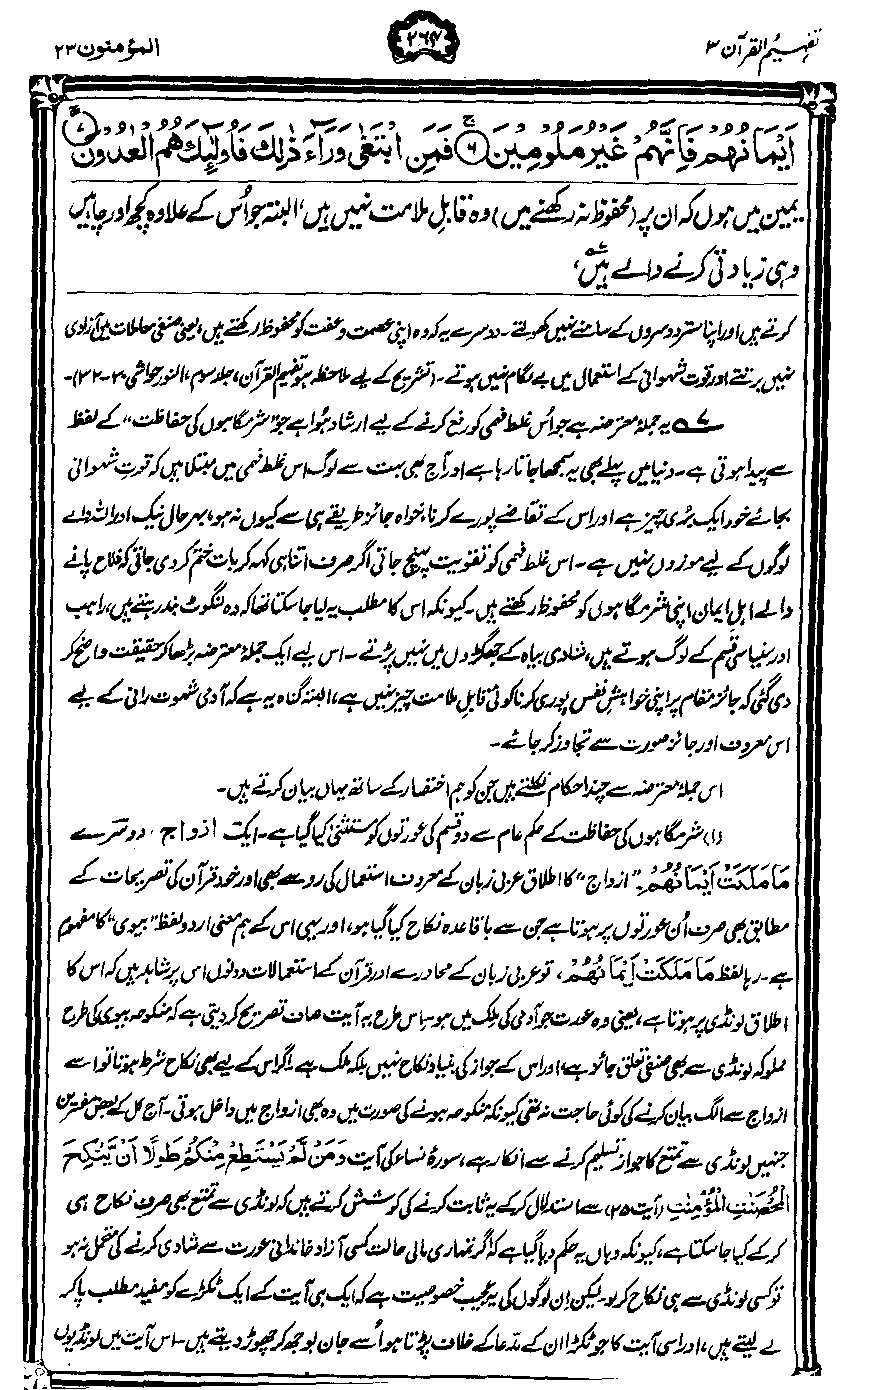 تفہیم القرآن ۳
۲۶۴
المؤمنون ۲۳
اَیْمَانُهُمْ فَاِنَّهُمْ غَیْرُ مَلُوْمِیْنَ ﴿۶﴾ فَمَنِ ابْتَغٰی وَرَآءَ ذٰلِكَ فَاُولٰٓئِكَ هُمُ الْعٰدُوْنَ ﴿۷﴾
یمین میں ہوں کہ ان پر (محفوظ نہ رکھنے میں) وہ قابلِ ملامت نہیں ہیں، البتہ جو اُس کے علاوہ کچھ اور چاہیں
وہی زیادتی کرنے والے ہیں،
کرتے ہیں اور اپنا ستر دوسروں کے سامنے نہیں کھولتے۔ دوسرے یہ کہ وہ اپنی عصمت و عفت کو محفوظ رکھتے ہیں، یعنی صنفی معاملات میں آزادی
نہیں برتتے اور قوت شہوانی کے استعمال میں بے لگام نہیں ہوتے۔ (تشریح کے لیے ملاحظہ ہو تفہیم القرآن، جلد سوم، النور حواشی ۳۰-۳۲)۔
۷ یہ جملۂ معترضہ ہے جو اُس غلط فہمی کو رفع کرنے کے لیے ارشاد ہوا ہے جو ”شرمگاہوں کی حفاظت“ کے لفظ
سے پیدا ہوتی ہے۔ دنیا میں پہلے بھی یہ سمجھا جاتا رہا ہے اور آج بھی بہت سے لوگ اس غلط فہمی میں مبتلا ہیں کہ قوتِ شہوانی
بجائے خود ایک بری چیز ہے اور اس کے تقاضے پورے کرنا، خواہ جائز طریقے ہی سے کیوں نہ ہو، بہرحال نیک اور اللہ والے
لوگوں کے لیے موزوں نہیں ہے۔ اس غلط فہمی کو تقویت پہنچ جاتی اگر صرف اتنا ہی کہہ کر بات ختم کر دی جاتی کہ فلاح پانے
والے اہلِ ایمان اپنی شرمگاہوں کو محفوظ رکھتے ہیں۔ کیونکہ اس کا مطلب یہ لیا جا سکتا تھا کہ وہ لنگوٹ بند رہتے ہیں، راہب
اور سنیاسی قسم کے لوگ ہوتے ہیں، شادی بیاہ کے جھگڑوں میں نہیں پڑتے۔ اس لیے ایک جملۂ معترضہ بڑھا کر حقیقت واضح کر
دی گئی کہ جائز مقام پر اپنی خواہشِ نفس پوری کرنا کوئی قابلِ ملامت چیز نہیں ہے، البتہ گناہ یہ ہے کہ آدمی شہوت رانی کے لیے
اس معروف اور جائز صورت سے تجاوز کر جائے۔
اس جملۂ معترضہ سے چند احکام نکلتے ہیں جن کو ہم اختصار کے ساتھ یہاں بیان کرتے ہیں۔
(۱) شرمگاہوں کی حفاظت کے حکم عام سے دو قسم کی عورتوں کو مستثنیٰ کیا گیا ہے۔ ایک ازواج، دوسرے
مَا مَلَكَتْ اَیْمَانُهُمْ۔ ”ازواج“ کا اطلاق عربی زبان کے معروف استعمال کی رو سے بھی اور خود قرآن کی تصریحات کے
مطابق بھی صرف اُن عورتوں پر ہوتا ہے جن سے باقاعدہ نکاح کیا گیا ہو، اور یہی اس کے ہم معنی اردو لفظ ”بیوی“ کا مفہوم
ہے۔ رہا لفظ مَا مَلَكَتْ اَیْمَانُهُمْ، تو عربی زبان کے محاورے اور قرآن کے استعمالات دونوں اس پر شاہد ہیں کہ اس کا
اطلاق لونڈی پر ہوتا ہے، یعنی وہ عورت جو آدمی کی مِلک میں ہو۔ اس طرح یہ آیت صاف تصریح کر دیتی ہے کہ منکوحہ بیوی کی طرح
مملوکہ لونڈی سے بھی صنفی تعلق جائز ہے، اور اس کے جواز کی بنیاد نکاح نہیں بلکہ مِلک ہے۔ اگر اس کے لیے بھی نکاح شرط ہوتا تو اسے
ازواج سے الگ بیان کرنے کی کوئی حاجت نہ تھی کیونکہ منکوحہ ہونے کی صورت میں وہ بھی ازواج میں داخل ہوتی۔ آج کل کے بعض مفسرین
جنہیں لونڈی سے تمتع کا جواز تسلیم کرنے سے انکار ہے، سورۂ نساء کی آیت وَمَنْ لَّمْ یَسْتَطِعْ مِنْكُمْ طَوْلًا اَنْ یَّنْكِحَ
الْمُحْصَنٰتِ الْمُؤْمِنٰتِ (آیت ۲۵) سے استدلال کر کے یہ ثابت کرنے کی کوشش کرتے ہیں کہ لونڈی سے تمتع بھی صرف نکاح ہی
کر کے کیا جا سکتا ہے، کیونکہ وہاں یہ حکم دیا گیا ہے کہ اگر تمہاری مالی حالت کسی آزاد خاندانی عورت سے شادی کرنے کی متحمل نہ ہو
تو کسی لونڈی سے ہی نکاح کر لو۔ لیکن اِن لوگوں کی یہ عجیب خصوصیت ہے کہ ایک ہی آیت کے ایک ٹکڑے کو مفید مطلب پا کر
لے لیتے ہیں، اور اسی آیت کا جو ٹکڑا ان کے مدعا کے خلاف پڑتا ہو اُسے جان بوجھ کر چھوڑ دیتے ہیں۔ اس آیت میں لونڈیوں